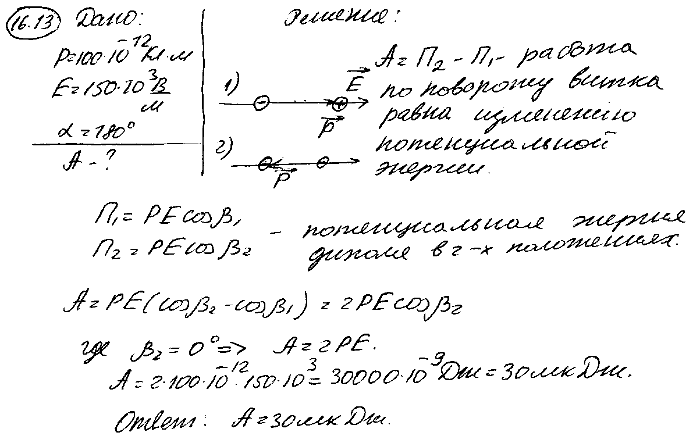 16.13 Дано:
P=100·10⁻¹² Кл·м
E=150·10³ В/м
α=180°
A - ?
Решение:
1) E
P
2)
P
A = П₂ - П₁ - работа
по повороту витка
равна изменению
потенциальной
энергии.
П₁ = PE cosβ₁
П₂ = PE cosβ₂
- потенциальная энергия
диполя в 2-х положениях.
A = PE(cosβ₂ - cosβ₁) = 2PE cosβ₂
где β₂ = 0° => A = 2PE.
A = 2·100·10⁻¹²·150·10³ = 30000·10⁻⁹ Дж = 30 мкДж.
Ответ: A = 30 мкДж.